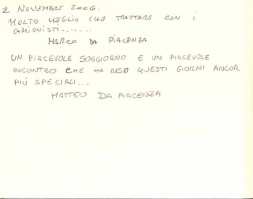 2 NOVEMBRE 2006.
MOLTO MEGLIO CHE TRATTARE CON I
CAMIONISTI.......
MARCO DA PIACENZA
UN PIACEVOLE SOGGIORNO E UN PIACEVOLE
INCONTRO CHE HA RESO QUESTI GIORNI ANCOR
PIÙ SPECIALI...
MATTEO DA PIACENZA